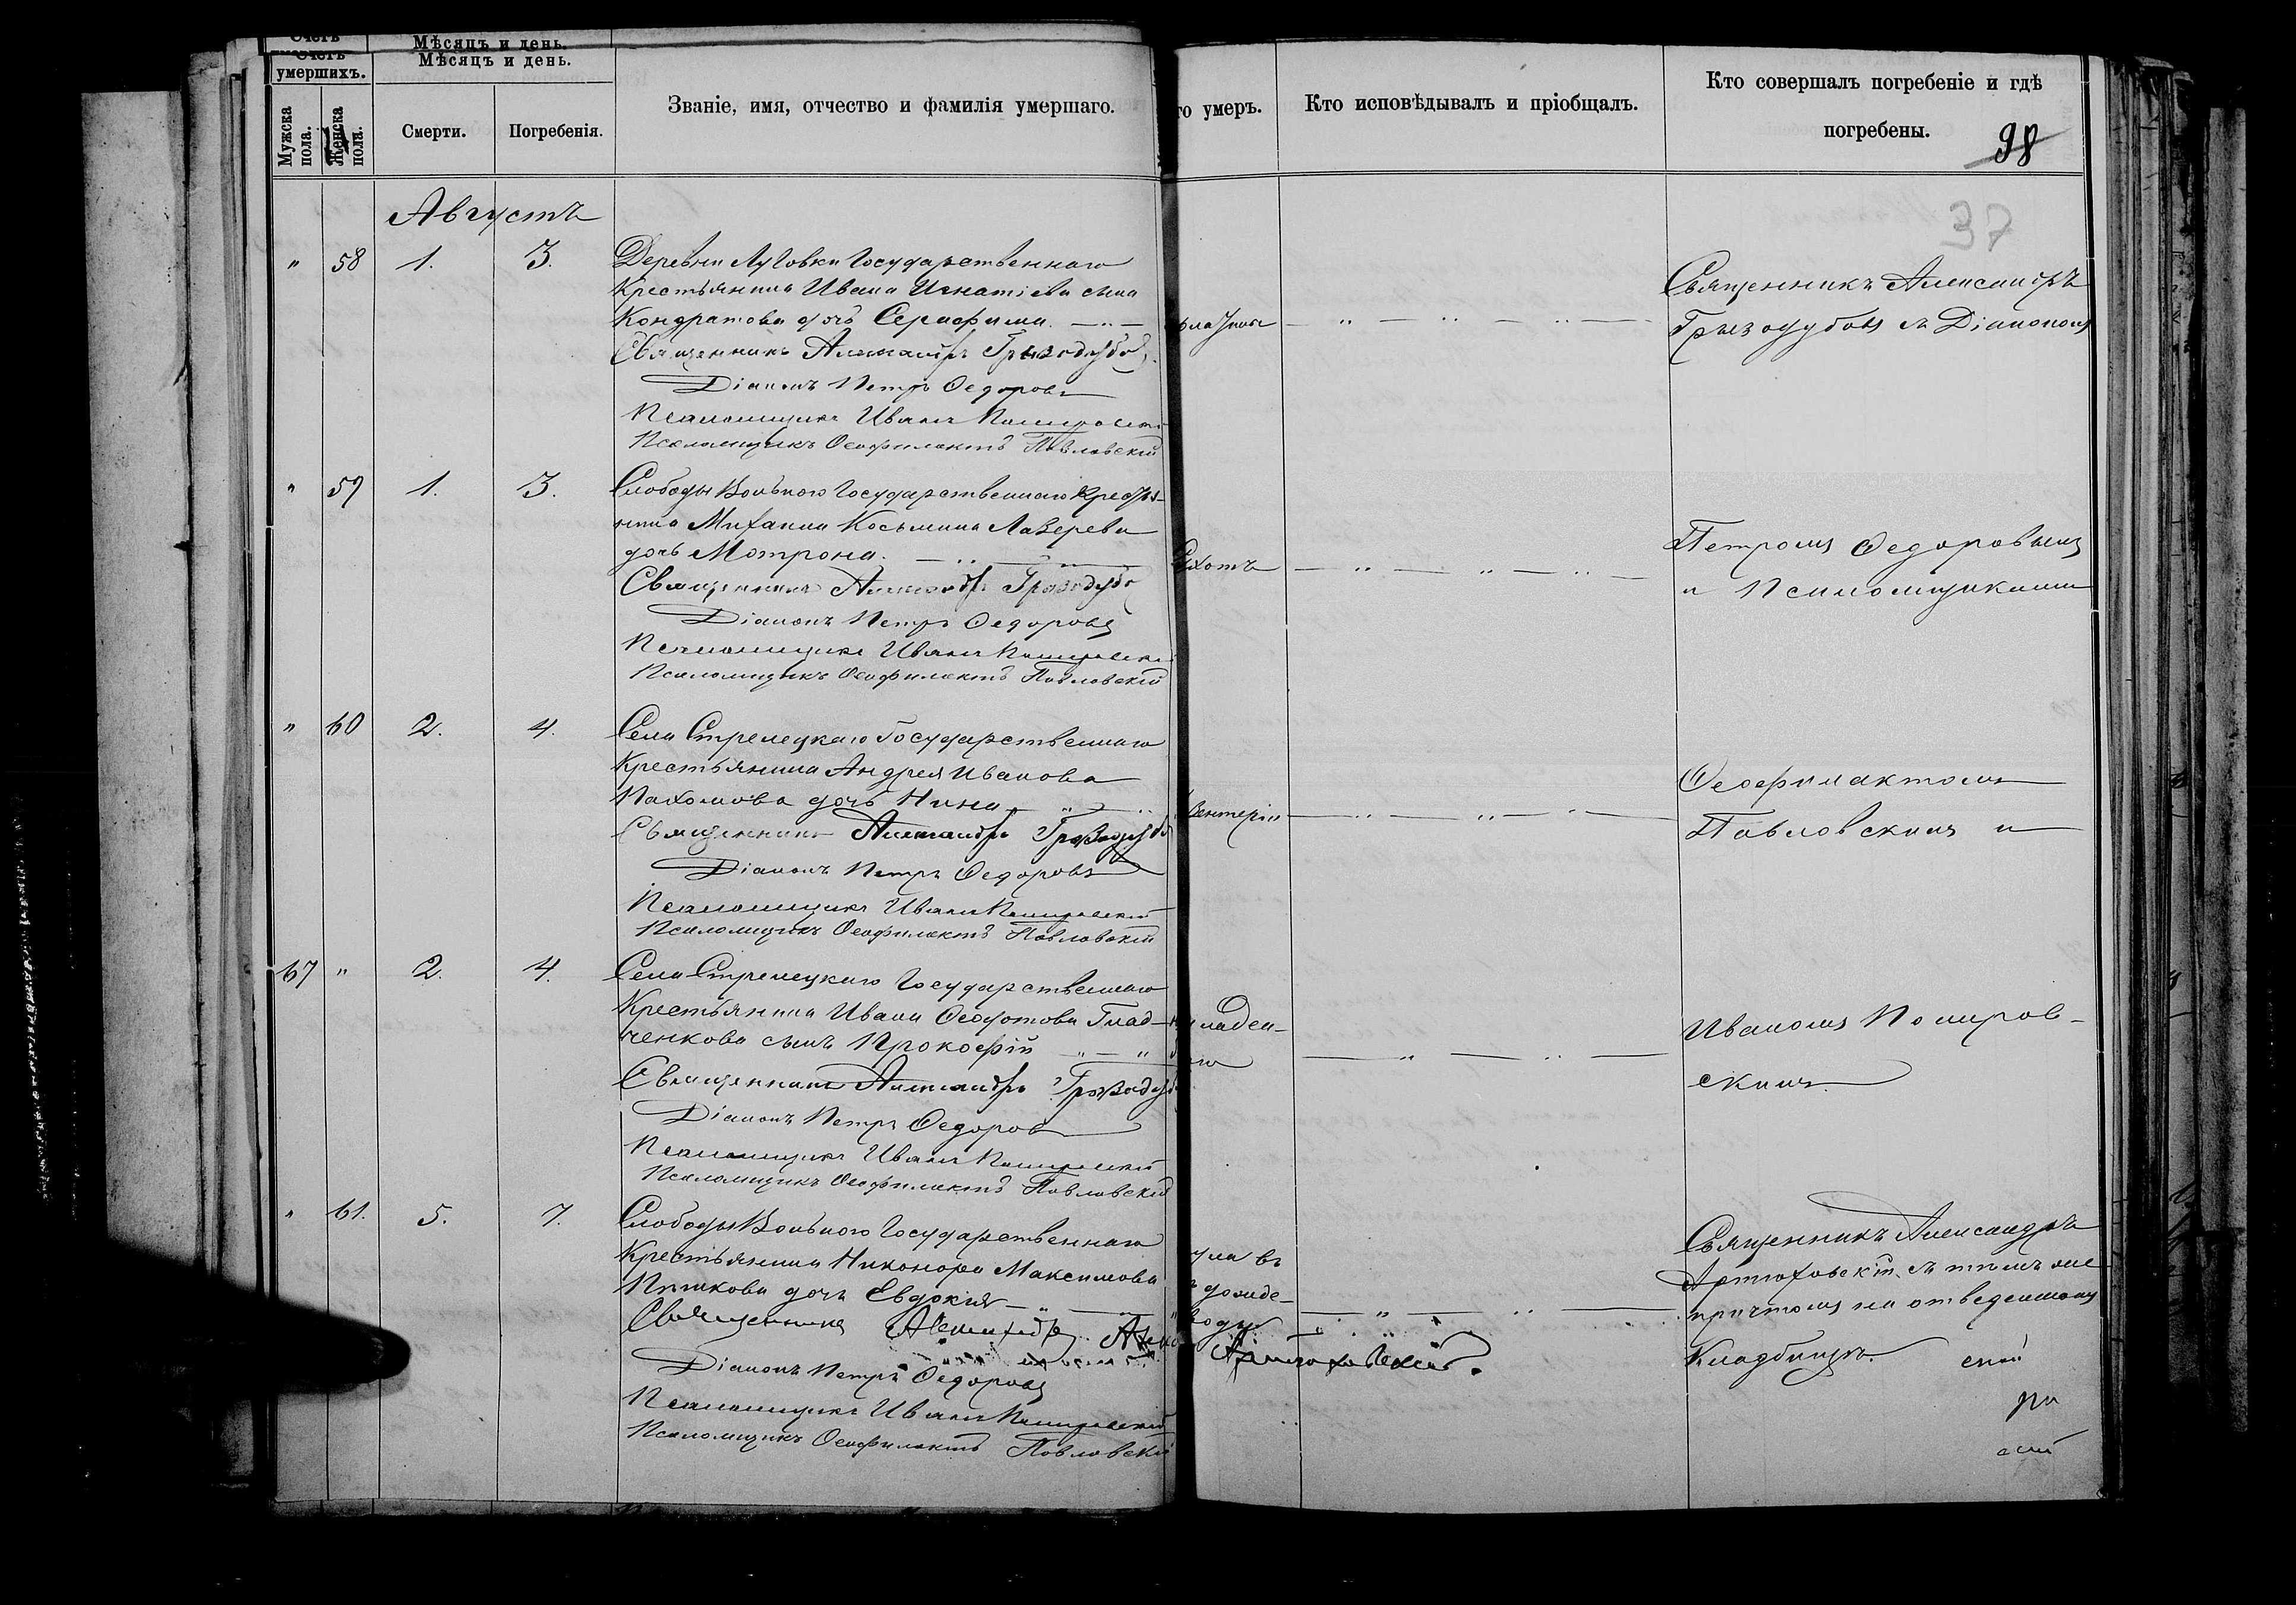 Счетъ
Мѣсяцъ и день.
Счетъ умершихъ.
Мѣсяцъ и день.
Мужска пола.
Женска пола.
Смерти.
Погребенія.
Званіе, имя, отчество и фамилія умершаго.
го умеръ.
Кто исповѣдывалъ и пріобщалъ.
Кто совершалъ погребеніе и гдѣ
погребены.
98
37
Августъ
" 58 1. 3. Деревни Луговки Государственнаго
Крестьянина Ивана Игнатіева сына
Кондратова дочь Серафима.
Священникъ Александръ Грызодубовъ
Діаконъ Петръ Ѳедоровъ
Псаломщикъ Иванъ Покировскій
Псаломщикъ Ѳеофилактъ Павловскій
Священникъ Александръ
Грызодубовъ съ Діакономъ
" 59 1. 3. Слободы Вольного Государственнаго Кресть-
янина Михаила Косьмина Лазерева
дочь Мотрона.
Священникъ Александръ
Діаконъ Петръ Ѳедоровъ
Псаломщикъ Иванъ
Псаломщикъ Ѳеофилактъ Павловскій
Петромъ Ѳедоровымъ
и Псаломщиками
" 60 2. 4. Села Стрелецкаго Государственнаго
Крестьянина Андрея Иванова
Пахомова дочь Нина
Священникъ Александръ
Діаконъ Петръ Ѳедоровъ
Псаломщикъ Иванъ
Псаломщикъ Ѳеофилактъ Павловскій
зентеріи
Ѳеофилактомъ
Павловскимъ и
67 " 2. 4. Села Стрелецкаго Государственнаго
Крестьянина Ивана Ѳедотова Глад-
ченкова сынъ Прокофій
Священникъ Александръ
Діаконъ Петръ Ѳедоровъ
Псаломщикъ Иванъ
Псаломщикъ Ѳеофилактъ Павловскій
младен-
Иваномъ Покиров-
скимъ.
" 61. 5. 7. Слободы Вольного Государственнаго
Крестьянина Никонора Максимова
дочь Евдокія
Священникъ Александръ
Артюховскій.
Діаконъ Петръ Ѳедоровъ
Псаломщикъ Иванъ
Псаломщикъ Ѳеофилактъ Павловскій
ула въ
дожде-
воду
Священникъ Александръ
Артюховскій съ тѣмъ же
причтомъ на отведенномъ
Кладбищѣ.